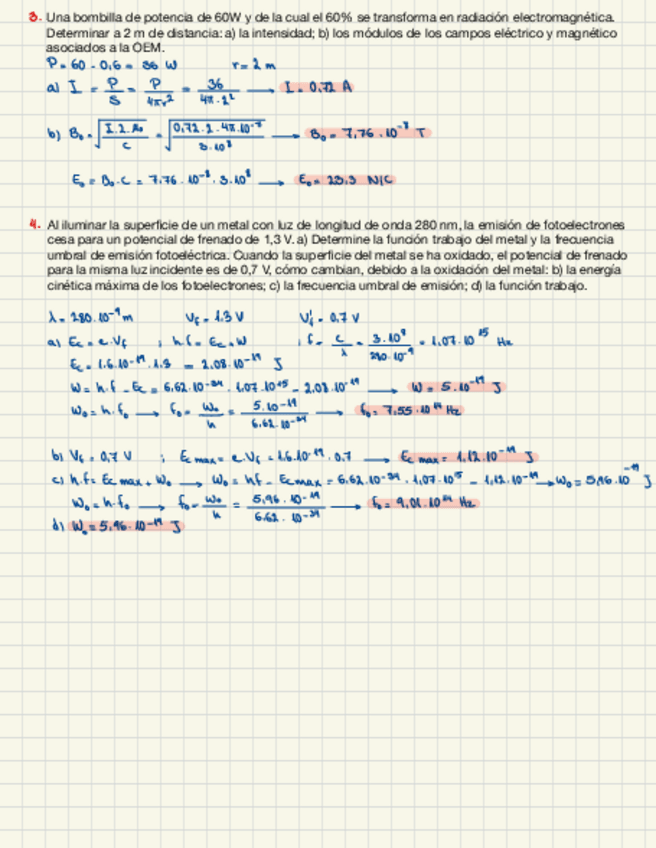 3. Una bombilla de potencia de 60W y de la cual el 60% se transforma en radiación electromagnética.
Determinar a 2 m de distancia: a) la intensidad; b) los módulos de los campos eléctrico y magnético
asociados a la OEM.
P = 60 · 0,6 = 36 W r = 2 m
a) I = P/S = P/4πr² = 36/4π·2² → I = 0,72 A
b) B₀ = √(I·2·μ₀/c) = √(0,72·2·4π·10⁻⁷/3·10⁸) → B₀ = 7,76·10⁻⁸ T
E₀ = B₀·c = 7,76·10⁻⁸·3·10⁸ → E₀ = 23,3 N/C
4. Al iluminar la superficie de un metal con luz de longitud de onda 280 nm, la emisión de fotoelectrones
cesa para un potencial de frenado de 1,3 V. a) Determine la función trabajo del metal y la frecuencia
umbral de emisión fotoeléctrica. Cuando la superficie del metal se ha oxidado, el potencial de frenado
para la misma luz incidente es de 0,7 V, cómo cambian, debido a la oxidación del metal: b) la energía
cinética máxima de los fotoelectrones; c) la frecuencia umbral de emisión; d) la función trabajo.
λ = 280·10⁻⁹ m V_f = 1,3 V V'_f = 0,7 V
a) Ec = e·V_f ; h·f = Ec + W ; f = c/λ = 3·10⁸/280·10⁻⁹ = 1,07·10¹⁵ Hz
Ec = 1,6·10⁻¹⁹·1,3 = 2,08·10⁻¹⁹ J
W = h·f - Ec = 6,62·10⁻³⁴·1,07·10¹⁵ - 2,08·10⁻¹⁹ → W = 5·10⁻¹⁹ J
W₀ = h·f₀ → f₀ = W₀/h = 5·10⁻¹⁹/6,62·10⁻³⁴ → f₀ = 7,55·10¹⁴ Hz
b) V_f = 0,7 V ; Ec max = e·V_f = 1,6·10⁻¹⁹·0,7 → Ec max = 1,12·10⁻¹⁹ J
c) h·f = Ec max + W₀ → W₀ = hf - Ec max = 6,62·10⁻³⁴·1,07·10¹⁵ - 1,12·10⁻¹⁹ → W₀ = 5,96·10⁻¹⁹ J
W₀ = h·f₀ → f₀ = W₀/h = 5,96·10⁻¹⁹/6,62·10⁻³⁴ → f₀ = 9,01·10¹⁴ Hz
d) W₀ = 5,96·10⁻¹⁹ J